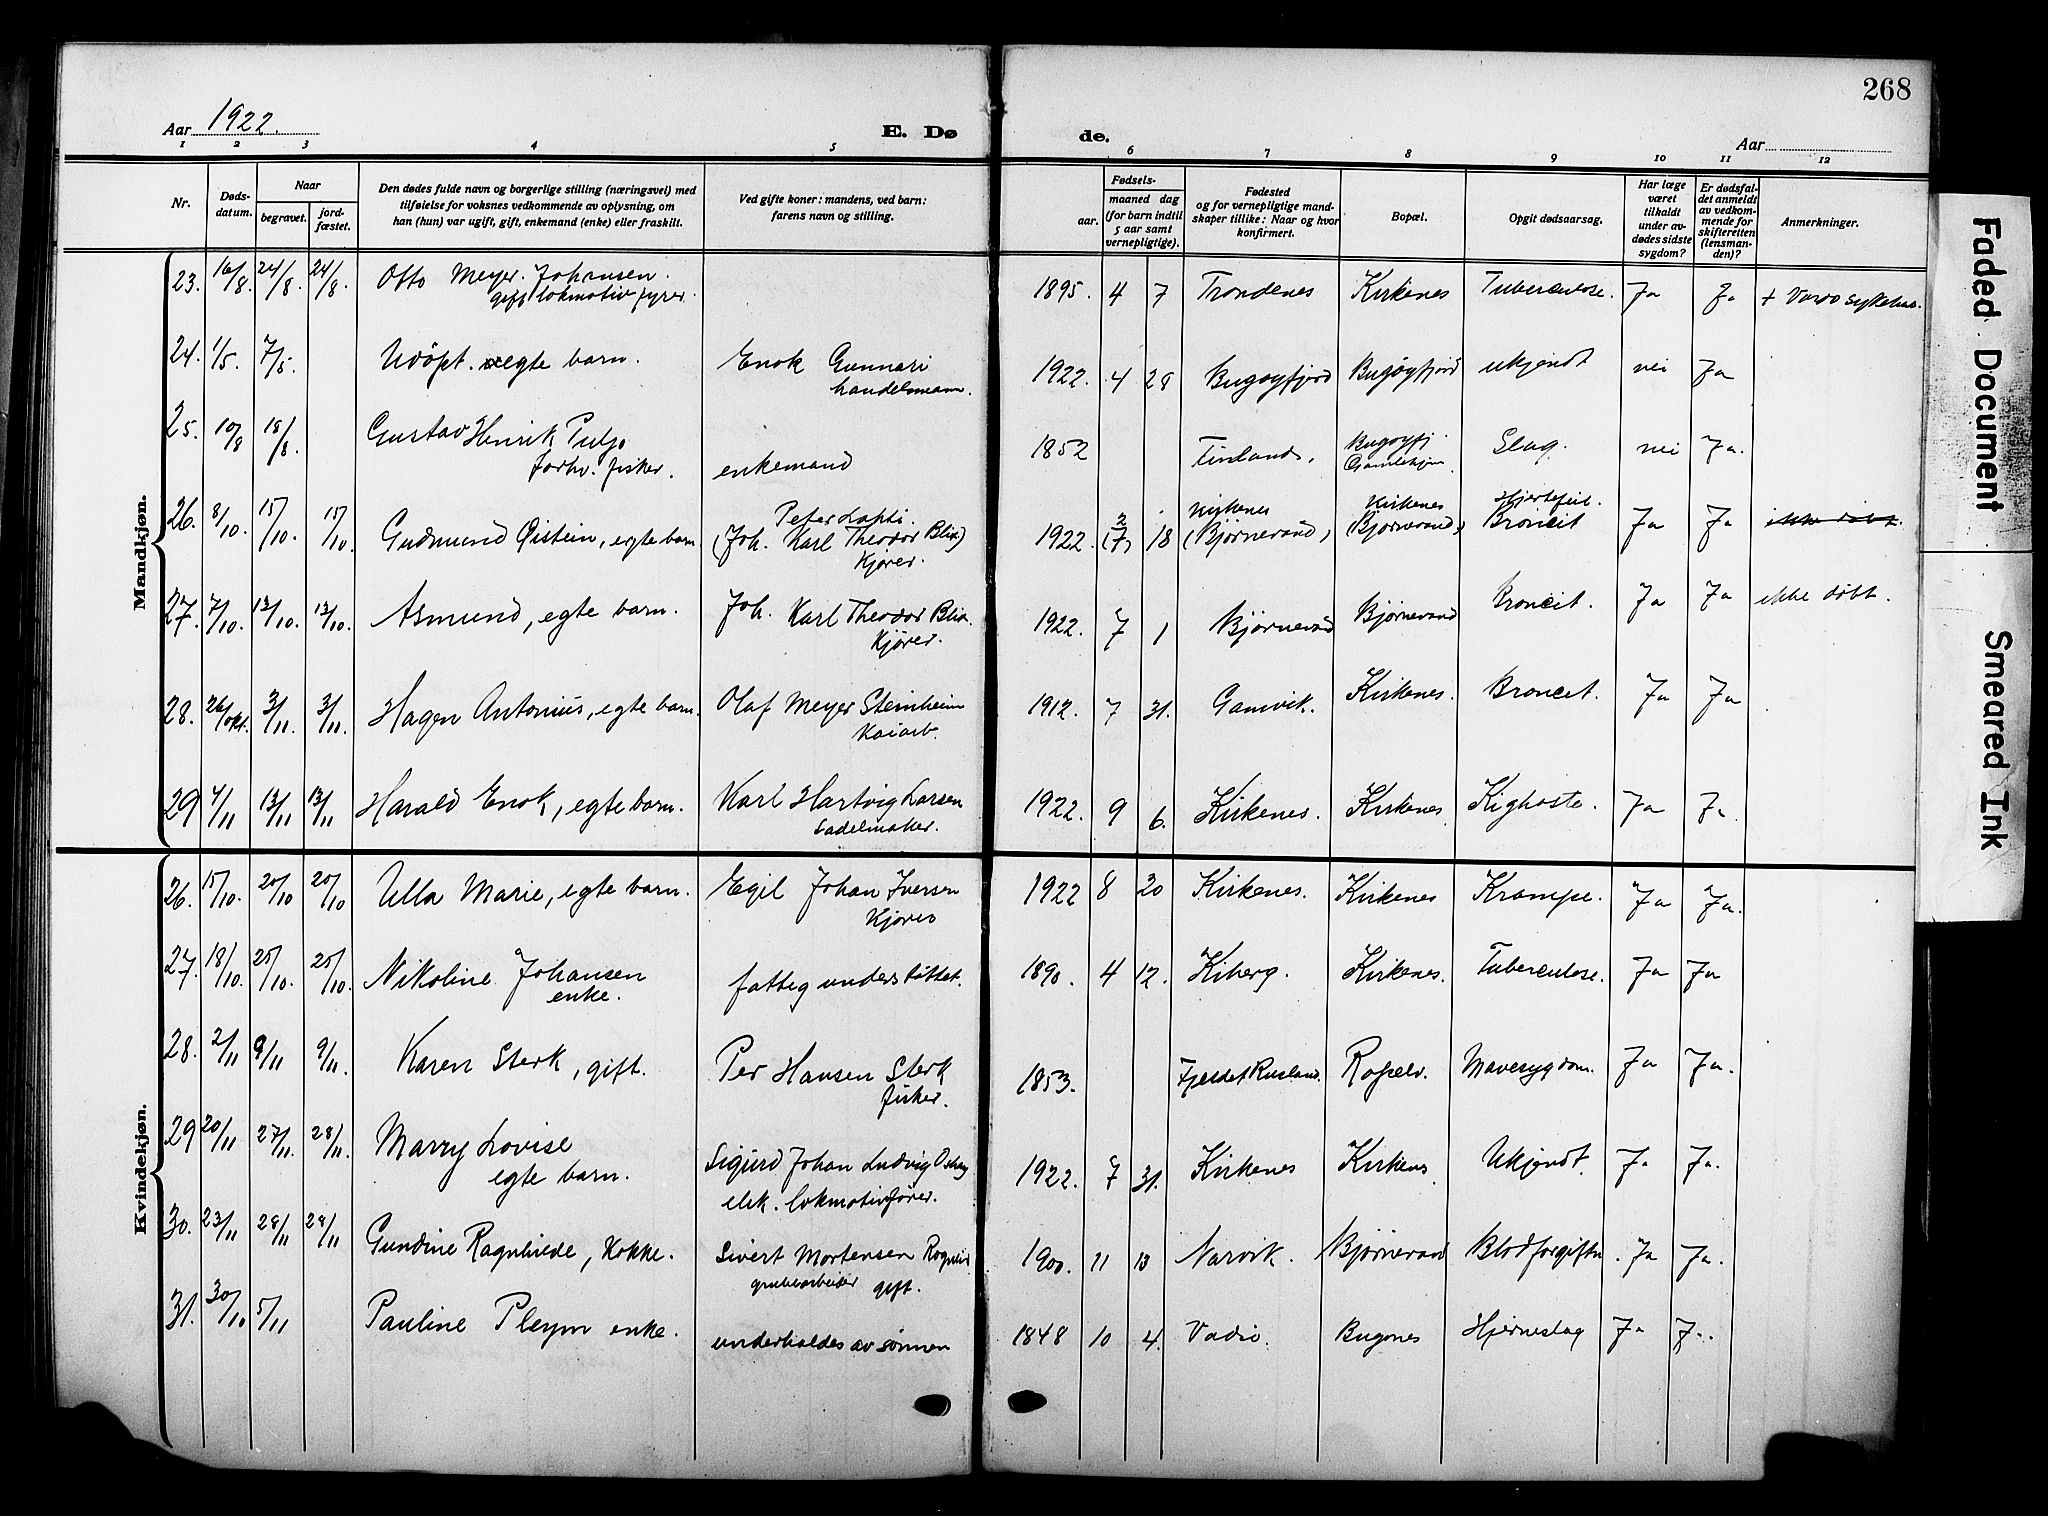 268
Aar 1922.
E. Dø de.
Aar
1 2 3 4 5 6 7 8 9 10 11 12
Nr.
Døds-
datum.
Naar
begravet.
jord-
fæstet.
Den dødes fulde navn og borgerlige stilling (næringsvei) med
tilføielse for voksnes vedkommende av oplysning, om
han (hun) var ugift, gift, enkemand (enke) eller fraskilt.
Ved gifte koner: mandens, ved barn:
farens navn og stilling.
Fødsels-
aar. maaned dag
(for barn indtil
5 aar samt
vernepligtige).
Fødested
og for vernepligtige mand-
skaper tillike: Naar og hvor
konfirmert.
Bopæl.
Opgit dødsaarsag.
Har læge
været
tilkaldt
under av-
dødes sidste
sygdom?
Er dødsfal-
det anmeldt
av vedkom-
mende for
skifteretten
(lensman-
den)?
Anmerkninger.
Mandkjøn.
23. 16/8 24/8 24/8 Otto Meyer Johansen. 1895 4 7 Trondenes Kirkenes Tuberculose. Ja Ja + Vardø sykehus.
gift lokomotiv fyrer.
24. 1/5 7/5 Udöpt. egte barn. Enok Gunnari 1922. 4 28 Bugøyfjord Bugøyfjord ukjendt nei Ja
handelsmann.
25. 10/8 18/8 Gustav Henrik Puljo 1852 Finland, Bugøyfj. Slag. nei Ja.
forhv. fisker. enkemand
26. 8/10. 15/10. 15/10. Gudmund Øistein, egte barn Peter Lapti. 1922. 2 18 Kirkenes Kirkenes Hjertefeil. Ja Ja ikke döbt.
(Joh. Karl Theodor Blix) (7) (Bjørnevand) (Bjørnevand) Broncit
Kjører.
27. 7/10. 13/10. 13/10. Asmund, egte barn. Joh. Karl Theodor Blix. 1922. 7 1 Bjørnevand Bjørnevand Broncit. Ja Ja ikke döbt.
Kjører.
28. 26/okt. 3/11. 3/11. Hagen Antonius, egte barn. Olaf Meyer Steinheim 1912. 7 31. Gamvik. Kirkenes. Broncit. Ja Ja
Kaiarb.
29 4/11 13/11 13/11 Harald Enok, egte barn. Karl Hartvig Larsen 1922. 9 6. Kirkenes. Kirkenes. Kighoste. Ja Ja.
Sadelmaker.
Kvindekjøn.
26. 15/10. 20/10 20/10 Ulla Marie, egte barn. Egil Johan Iversen 1922 8 20 Kirkenes. Kirkenes Krampe. Ja Ja.
Kjører
27. 18/10. 25/10. 25/10. Nikoline Johansen fattigunderstöttet. 1890. 4 12. Kiberg. Kirkenes. Tuberculose. Ja Ja
enke.
28. 2/11 9/11 9/11. Karen Sterk, gift. Per Hansen Sterk 1853. Fjeldet Rusland. Mavesygdom. Ja Ja.
fisker.
29 20/11 27/11. 28/11. Marry Lovise Sigurd Johan Ludvig 1922. 7 31. Kirkenes Kirkenes Ukjendt. Ja Ja.
egte barn. elek. lokomotivfører.
30. 23/11 28/11 28/11 Gundine Ragnhilde, Kokke. Sivert Mortensen 1900. 11 13 Narvik. Bjørnevand Blodforgiftn. Ja Ja.
grubearbeider gift.
31. 30/10 5/11 Pauline Pleym enke. underholdes av sönnen 1848 10 4. Vadsö. Bugønes Hjerneslag Ja Ja.
Faded Document
Smeared Ink